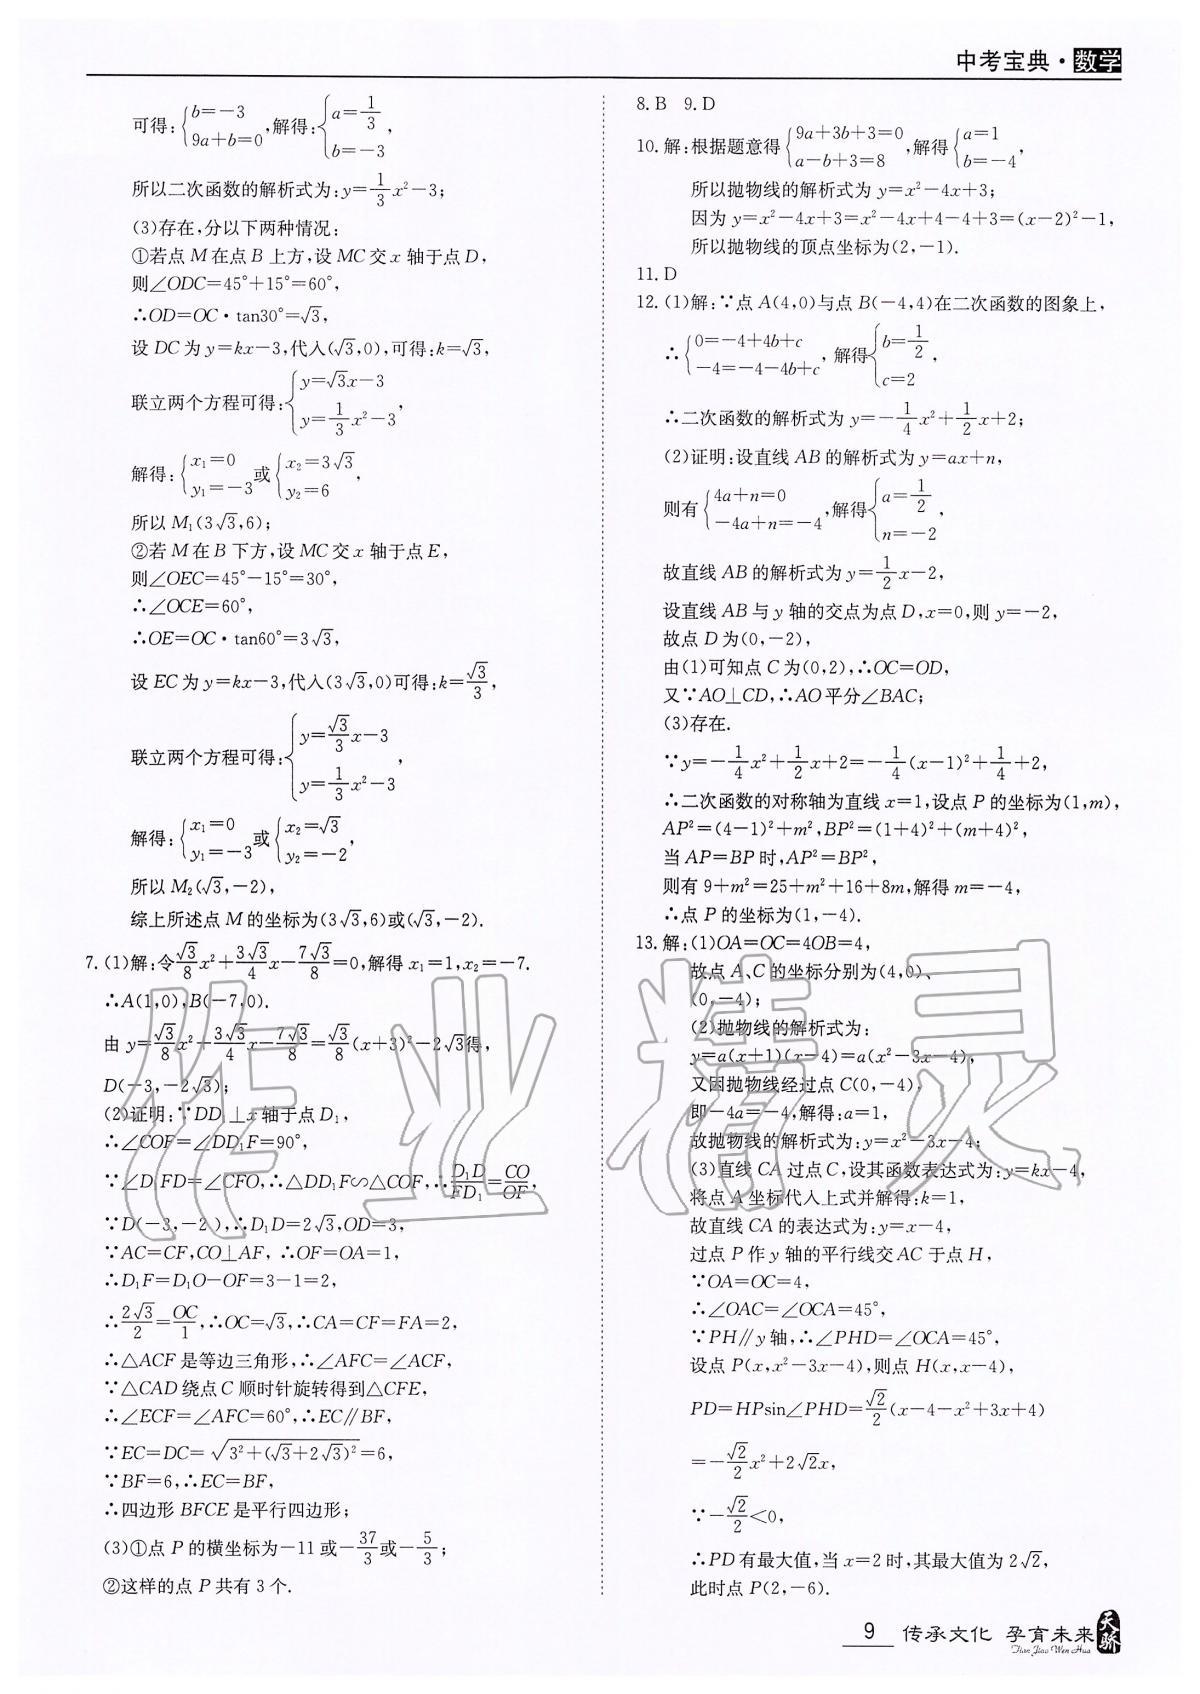 中考宝典·数学
可得:{b=-3, 9a+b=0,解得:{a=1/3, b=-3,
所以二次函数的解析式为:y=1/3x²-3;
(3)存在,分以下两种情况:
①若点M在点B上方,设MC交x轴于点D,
则∠ODC=45°+15°=60°,
∴OD=OC·tan30°=√3,
设DC为y=kx-3,代入(√3,0),可得:k=√3,
联立两个方程可得:{y=√3x-3, y=1/3x²-3,
解得:{x₁=0, y₁=-3或{x₂=3√3, y₂=6,
所以M₁(3√3,6);
②若M在B下方,设MC交x轴于点E,
则∠OEC=45°-15°=30°,
∴∠OCE=60°,
∴OE=OC·tan60°=3√3,
设EC为y=kx-3,代入(3√3,0)可得:k=√3/3,
联立两个方程可得:{y=√3/3x-3, y=1/3x²-3,
解得:{x₁=0, y₁=-3或{x₂=√3, y₂=-2,
所以M₂(√3,-2),
综上所述点M的坐标为(3√3,6)或(√3,-2).
7.(1)解:令√3/8x²+3√3/4x-7√3/8=0,解得x₁=1,x₂=-7.
∴A(1,0),B(-7,0).
由y=√3/8x²+3√3/4x-7√3/8=√3/8(x+3)²-2√3得,
D(-3,-2√3);
(2)证明:∵DD₁⊥x轴于点D₁,
∴∠COF=∠DD₁F=90°,
∵∠D₁FD=∠CFO,∴△DD₁F∽△COF,∴D₁D/FD₁=CO/OF,
∵D(-3,-2 ),∴D₁D=2√3,OD=3,
∵AC=CF,CO⊥AF, ∴OF=OA=1,
∴D₁F=D₁O-OF=3-1=2,
∴2√3/2=OC/1,∴OC=√3,∴CA=CF=FA=2,
∴△ACF是等边三角形,∴∠AFC=∠ACF,
∵△CAD绕点C顺时针旋转得到△CFE,
∴∠ECF=∠AFC=60°,∴EC∥BF,
∵EC=DC=√(3²+(√3+2√3)²)=6,
∵BF=6,∴EC=BF,
∴四边形BFCE是平行四边形;
(3)①点P的横坐标为-11或-37/3或-5/3;
②这样的点P共有3个.
8.B 9.D
10.解:根据题意得{9a+3b+3=0, a-b+3=8,解得{a=1, b=-4,
所以抛物线的解析式为y=x²-4x+3;
因为y=x²-4x+3=x²-4x+4-4+3=(x-2)²-1,
所以抛物线的顶点坐标为(2,-1).
11.D
12.(1)解:∵点A(4,0)与点B(-4,4)在二次函数的图象上,
∴{0=-4+4b+c, -4=-4-4b+c,解得{b=1/2, c=2,
∴二次函数的解析式为y=-1/4x²+1/2x+2;
(2)证明:设直线AB的解析式为y=ax+n,
则有{4a+n=0, -4a+n=-4,解得{a=1/2, n=-2,
故直线AB的解析式为y=1/2x-2,
设直线AB与y轴的交点为点D,x=0,则y=-2,
故点D为(0,-2),
由(1)可知点C为(0,2),∴OC=OD,
又∵AO⊥CD,∴AO平分∠BAC;
(3)存在.
∵y=-1/4x²+1/2x+2=-1/4(x-1)²+1/4+2,
∴二次函数的对称轴为直线x=1,设点P的坐标为(1,m),
AP²=(4-1)²+m²,BP²=(1+4)²+(m+4)²,
当AP=BP时,AP²=BP²,
则有9+m²=25+m²+16+8m,解得m=-4,
∴点P的坐标为(1,-4).
13.解:(1)OA=OC=4OB=4,
故点A、C的坐标分别为(4,0)、
(0,-4);
(2)抛物线的解析式为:
y=a(x+1)(x-4)=a(x²-3x-4),
又因抛物线经过点C(0,-4),
即-4a=-4,解得:a=1,
故抛物线的解析式为:y=x²-3x-4;
(3)直线CA过点C,设其函数表达式为:y=kx-4,
将点A坐标代入上式并解得:k=1,
故直线CA的表达式为:y=x-4,
过点P作y轴的平行线交AC于点H,
∵OA=OC=4,
∴∠OAC=∠OCA=45°,
∵PH∥y轴,∴∠PHD=∠OCA=45°,
设点P(x,x²-3x-4),则点H(x,x-4),
PD=HPsin∠PHD=√2/2(x-4-x²+3x+4)
=-√2/2x²+2√2x,
∵-√2/2<0,
∴PD有最大值,当x=2时,其最大值为2√2,
此时点P(2,-6).
作业精灵
9 传承文化 孕育未来 天骄
Tian Jiao Wen Hua